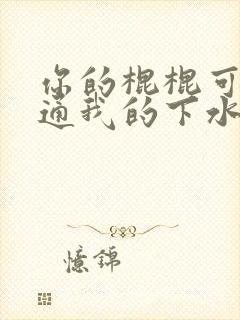 你的棍棍可
通我的下水
憶錦